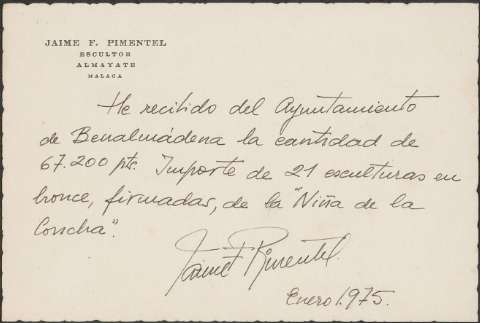 JAIME F. PIMENTEL
ESCULTOR
ALMAYATE
MALAGA
He recibido del Ayuntamiento
de Benalmádena la cantidad de
67.200 ptc. Importe de 21 esculturas en
bronce, firmadas, de la "Niña de la
Concha".
Jaime F Pimentel.
Enero 1.975.